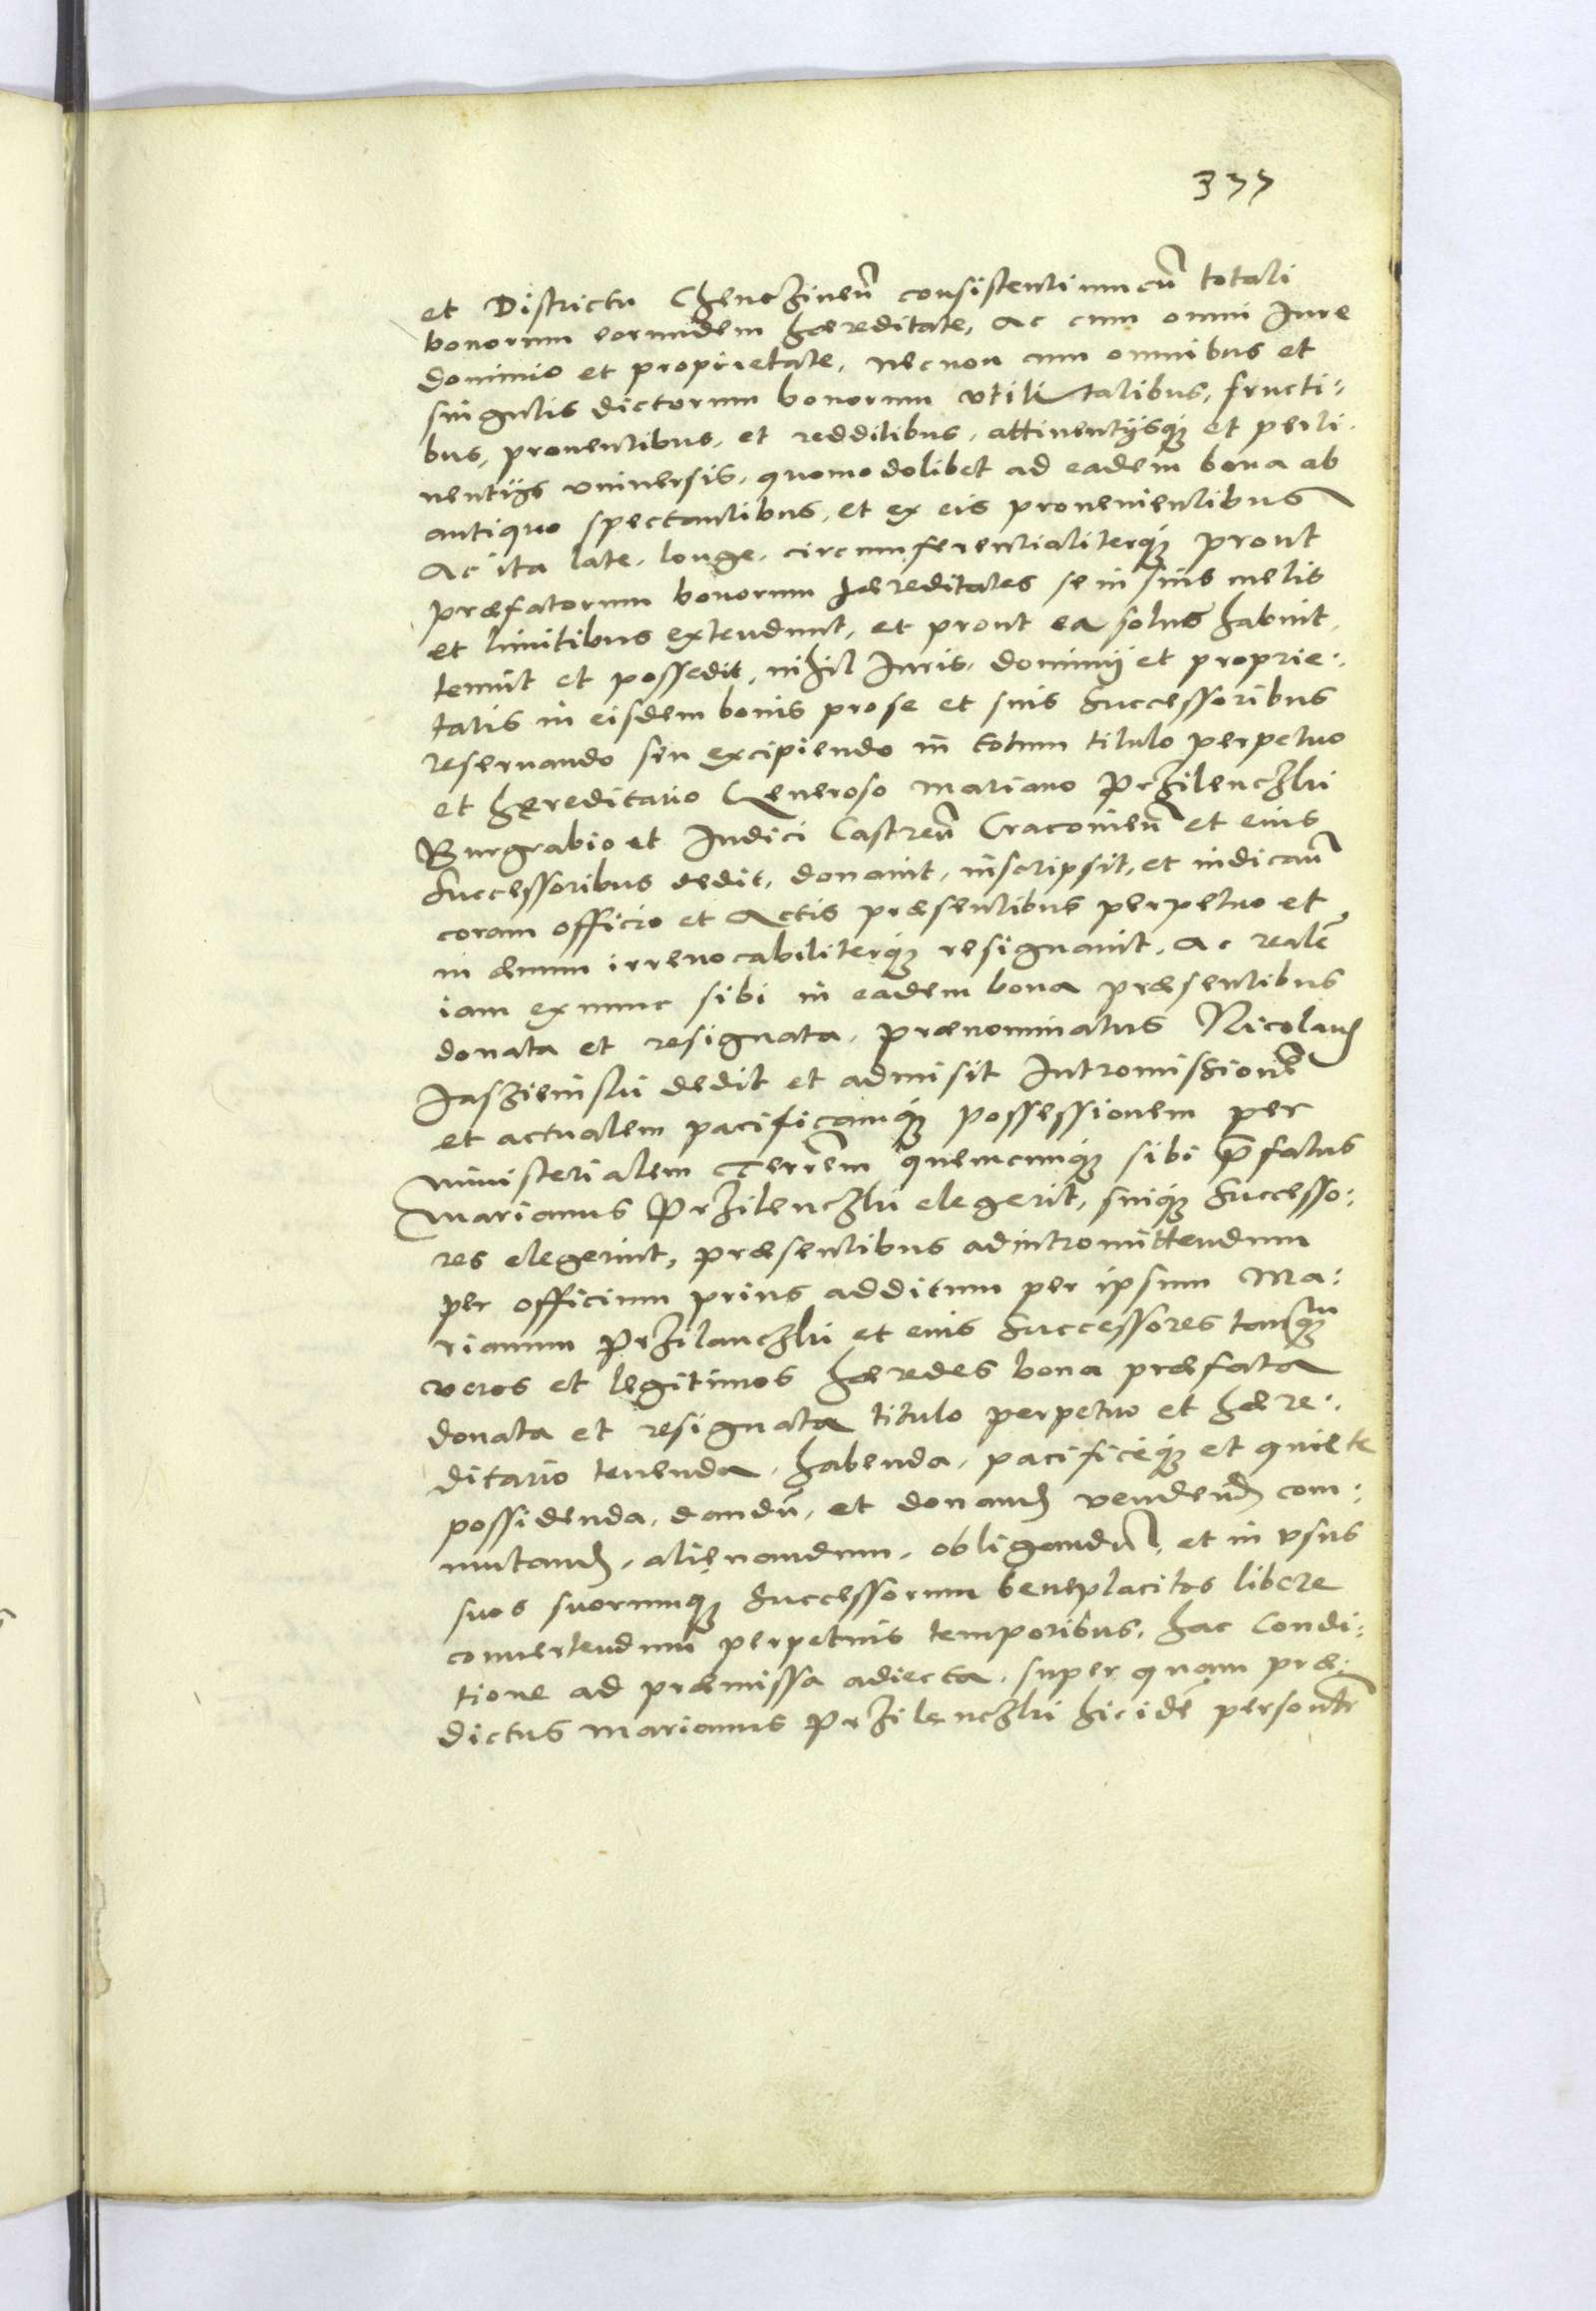 337
et Districtu Chenczineñ consistentium cũ totali
bonorum eorundem hæreditate, Ac cum omni Iure
dominio et proprietate, necnon cum omnibus et
singulis dictorum bonorum vtilitatibus, fructi:
bus, prouentibus, et redditibus, attinentijsq; et perti:
nentijs vniuersis, quomodolibet ad eadem bona ab
antiquo spectantibus, et ex eis prouenientibus
Ac ita late, longe, circumferentialiterq; prout
præfatorum bonorum hæreditates se in suis metis
et limitibus extendunt, et prout ea solus habuit,
tenuit et possedit, nihil Iuris, dominij et proprie:
tatis in eisdem bonis pro se et suis Successoribus
reseruando seu excipiendo in totum titulo perpetuo
et hęreditario Generoso Mariano Przilenczki
Burgrabio et Iudici Castreñ Cracouieñ et eius
Successoribus dedit, donauit, inscripsit, et indicauit
coram officio et Actis præsentibus perpetuo et
in æuum irreuocabiliterq; resignauit, Ac realẽ
iam ex nunc sibi in eadem bona præsentibus
donata et resignata, prænominatus Nicolaus
Jaszienski dedit et admisit Intromissionẽ
et actualem pacificamq; possessionem per
ministerialem Terrẽm quemcunq; sibi p̃fatus
Marianus Przilenczki elegerit, suiq; Successo:
res elegerint, præsentibus ad intromittendum
per officium prius additum per ipsum Ma:
rianum Przilanczki et eius Successores tanq̃
veros et legitimos hæredes bona præfata
donata et resignata titulo perpetuo et hære:
ditario tenenda, habenda, pacificeq; et quiete
possidenda, dandũ, et donand vendend com:
mutand, alienandum, obligandũ, et in vsus
suos suorumq; Successorum beneplacitos libere
conuertendum perpetuis temporibus, hac Condi:
tione ad præmissa adiecta, super quam præ:
dictus Marianus Przilenczki hic idẽ personlr